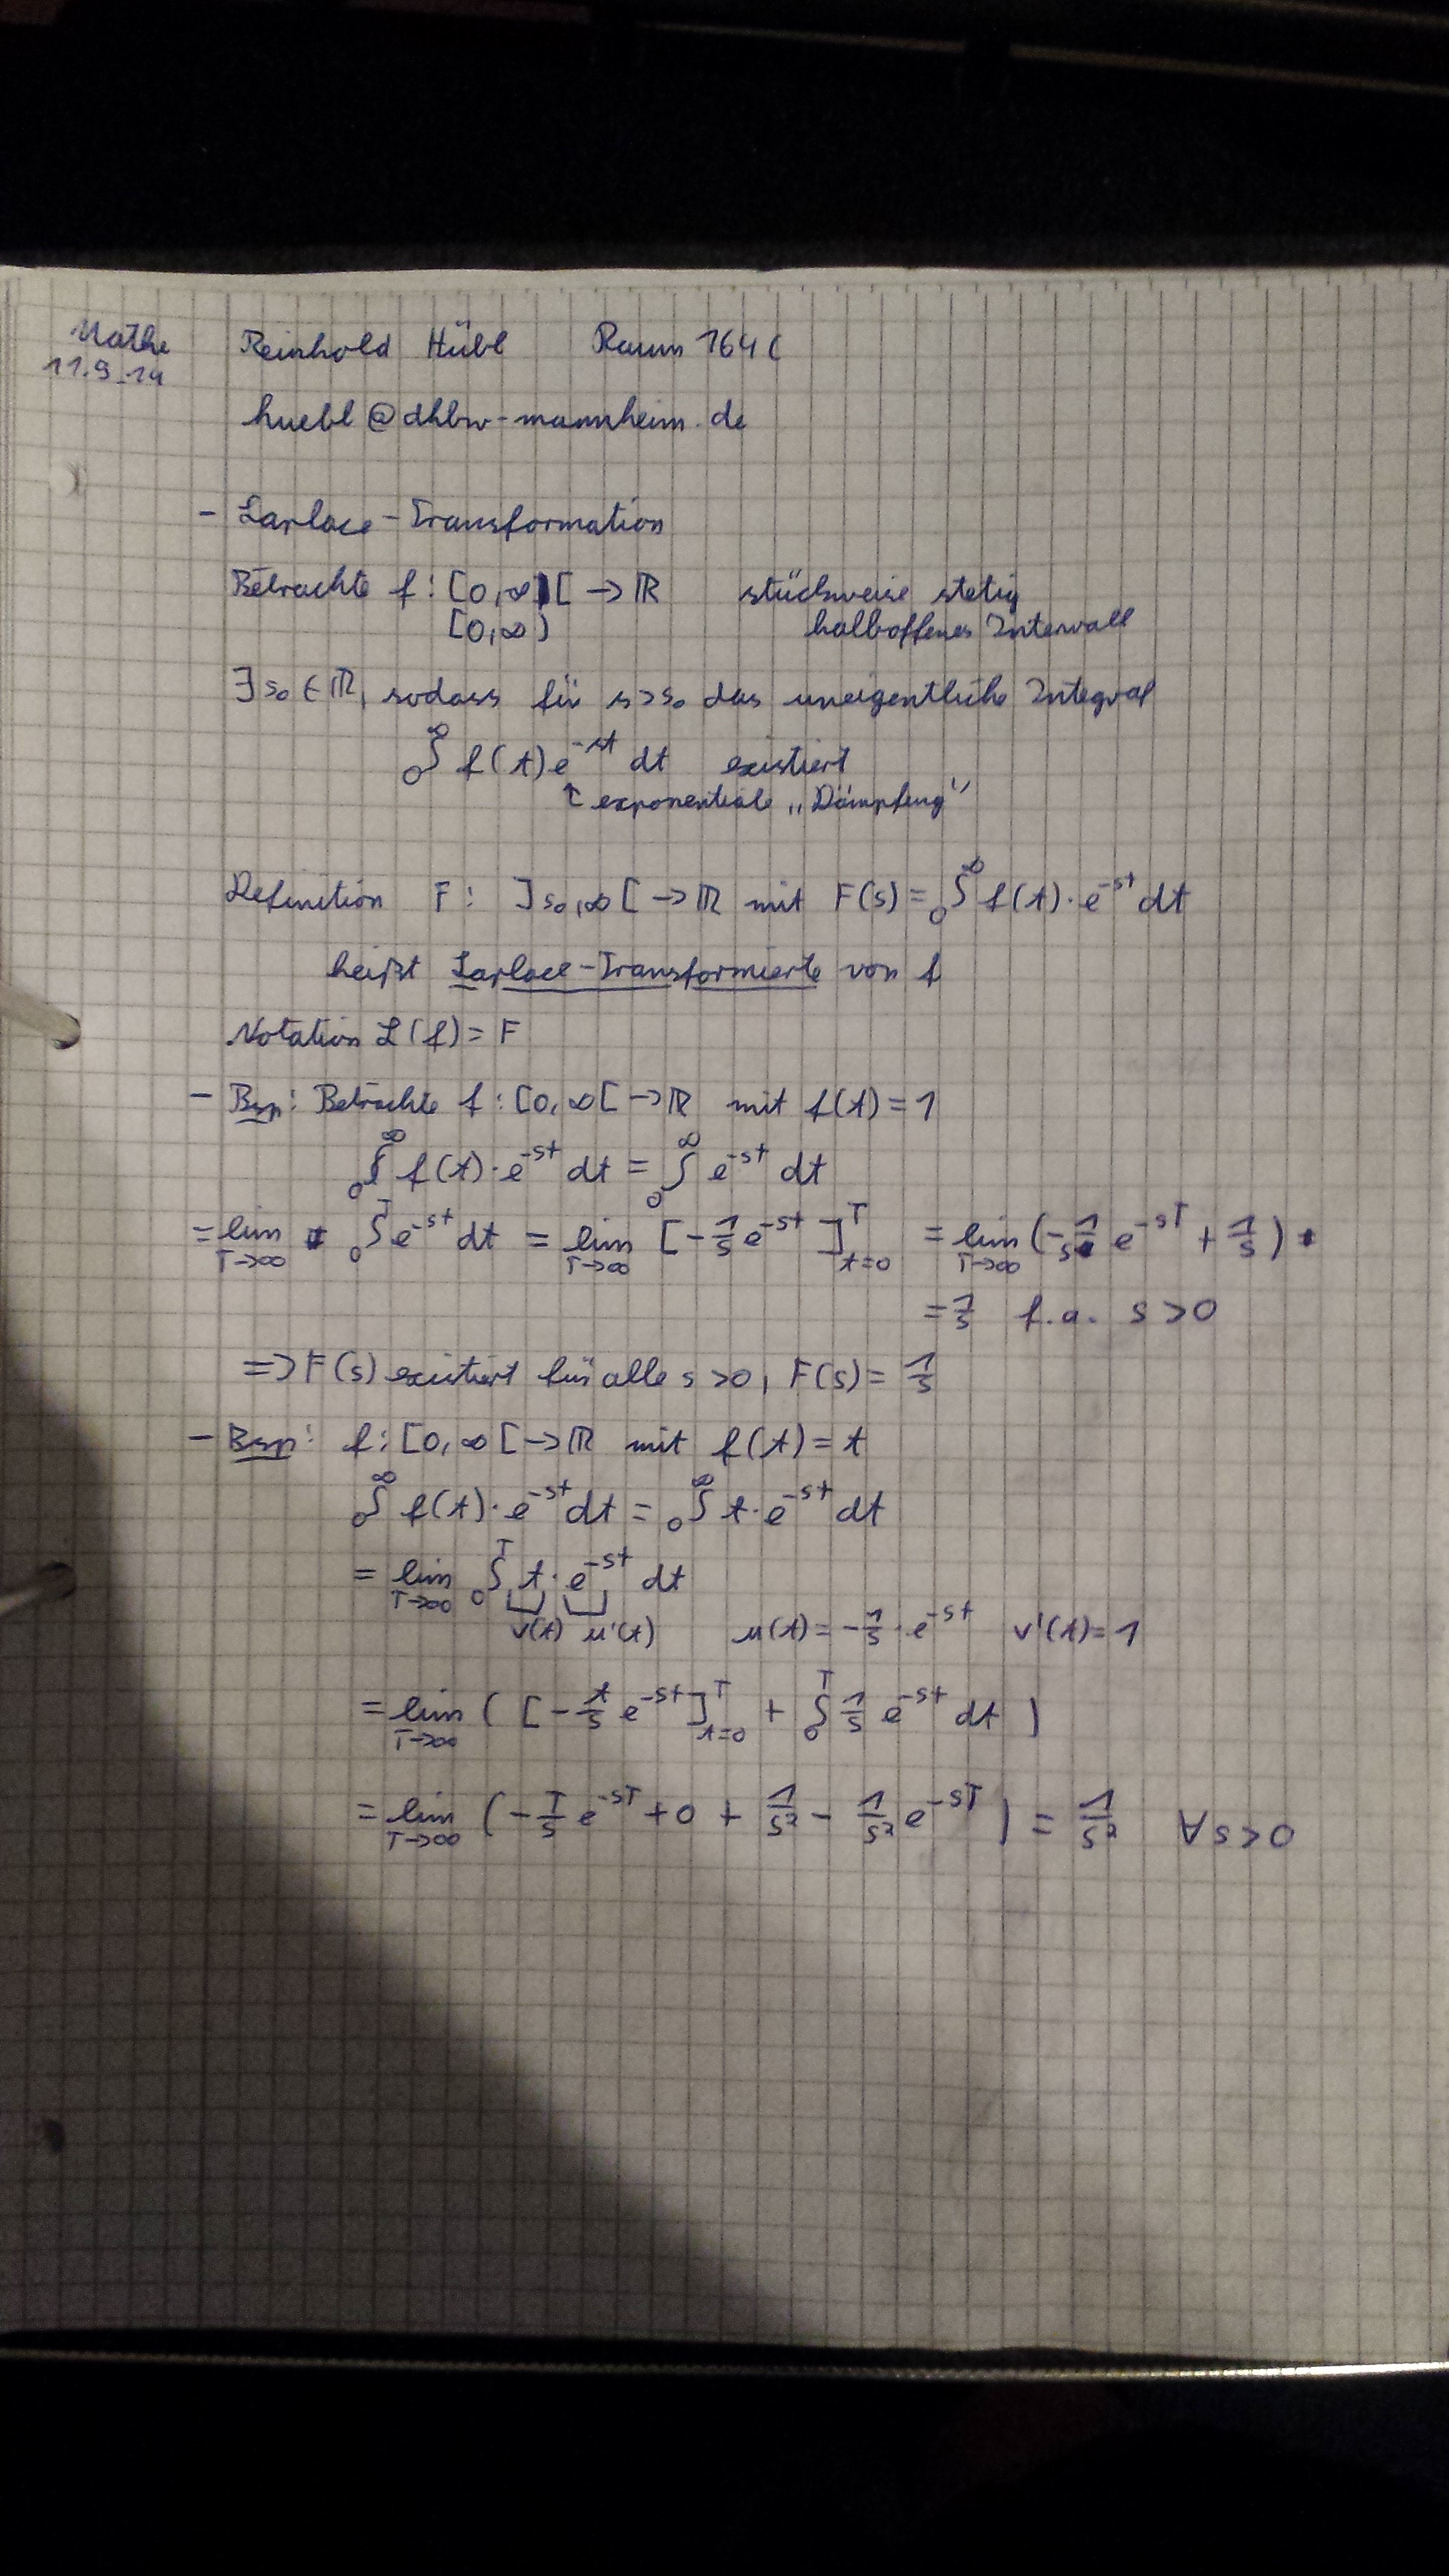 Mathe
11.9.14
Reinhold Hübl Raum 164C
huebl@dhbw-mannheim.de
- Laplace-Transformation
Betrachte f: [0,∞[ → ℝ stückweise stetig
[0,∞) halboffenes Intervall
∃ s₀ ∈ ℝ, sodass für s > s₀ das uneigentliche Integral
₀∫^∞ f(t)e^{-st} dt existiert
↑ exponentiale „Dämpfung"
Definition F: ]s₀,∞[ → ℝ mit F(s) = ₀∫^∞ f(t)·e^{-st} dt
heißt Laplace-Transformierte von f
Notation ℒ(f) = F
- Bsp: Betrachte f: [0,∞[ → ℝ mit f(t) = 1
₀∫^∞ f(t)·e^{-st} dt = ₀∫^∞ e^{-st} dt
= lim_{T→∞} ₀∫^T e^{-st} dt = lim_{T→∞} [-1/s e^{-st}]^T_{t=0} = lim_{T→∞} (-1/s e^{-sT} + 1/s)
= 1/s f.a. s > 0
=> F(s) existiert für alle s > 0, F(s) = 1/s
- Bsp: f: [0,∞[ → ℝ mit f(t) = t
₀∫^∞ f(t)·e^{-st} dt = ₀∫^∞ t·e^{-st} dt
= lim_{T→∞} ₀∫^T t·e^{-st} dt
v(t) u'(t) u(t) = -1/s·e^{-st} v'(t) = 1
= lim_{T→∞} ([-t/s e^{-st}]^T_{t=0} + ₀∫^T 1/s e^{-st} dt)
= lim_{T→∞} (-T/s e^{-sT} + 0 + 1/s² - 1/s² e^{-sT}) = 1/s² ∀ s < 0